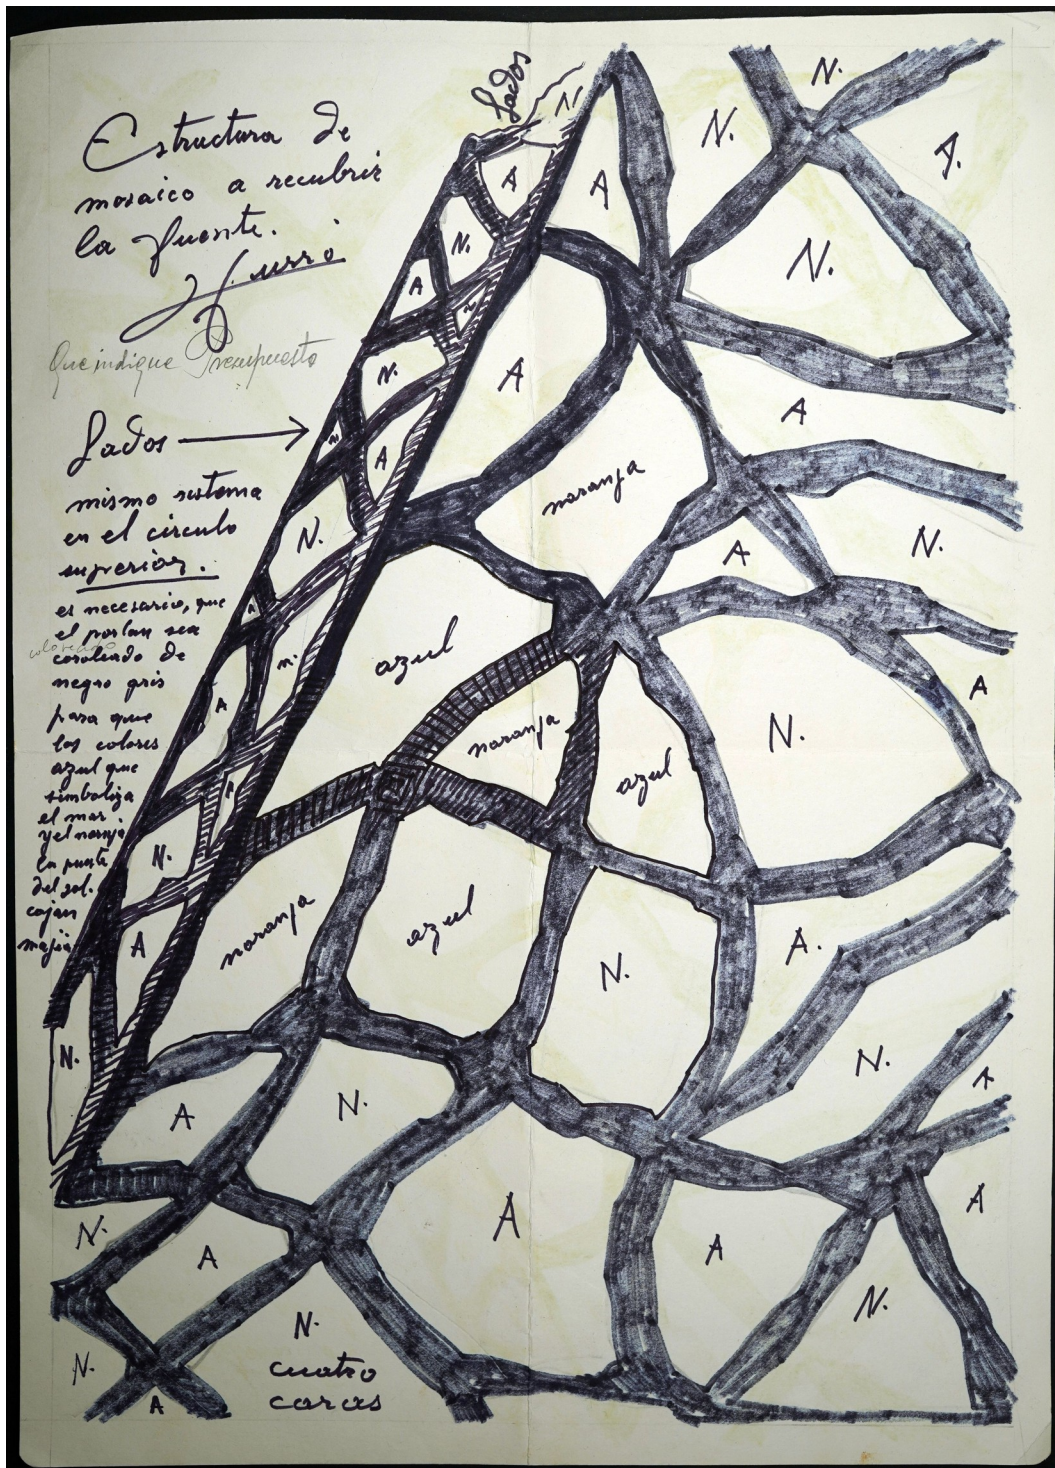 Estructura de
mosaico a recubrir
la fuente.
Que indique Presupuesto
Lados
mismo sistema
en el círculo
superior.
es necesario, que
el porlan sea
coloreado
coroleado de
negro gris
para que
los colores
azul que
simboliza
el mar
y el naranja
la puesta
del sol.
cojan
magia
Lados
N
A
N.
A
N.
A
N.
N.
A
N.
A
N.
A
n.
A
N.
A
N.
A
N.
N.
N.
A
A
naranja
N.
A
azul
naranja
azul
N.
A
naranja
azul
N.
A.
N.
A
A
N.
A
A
A
N.
A
N.
N.
N.
A
cuatro
caras